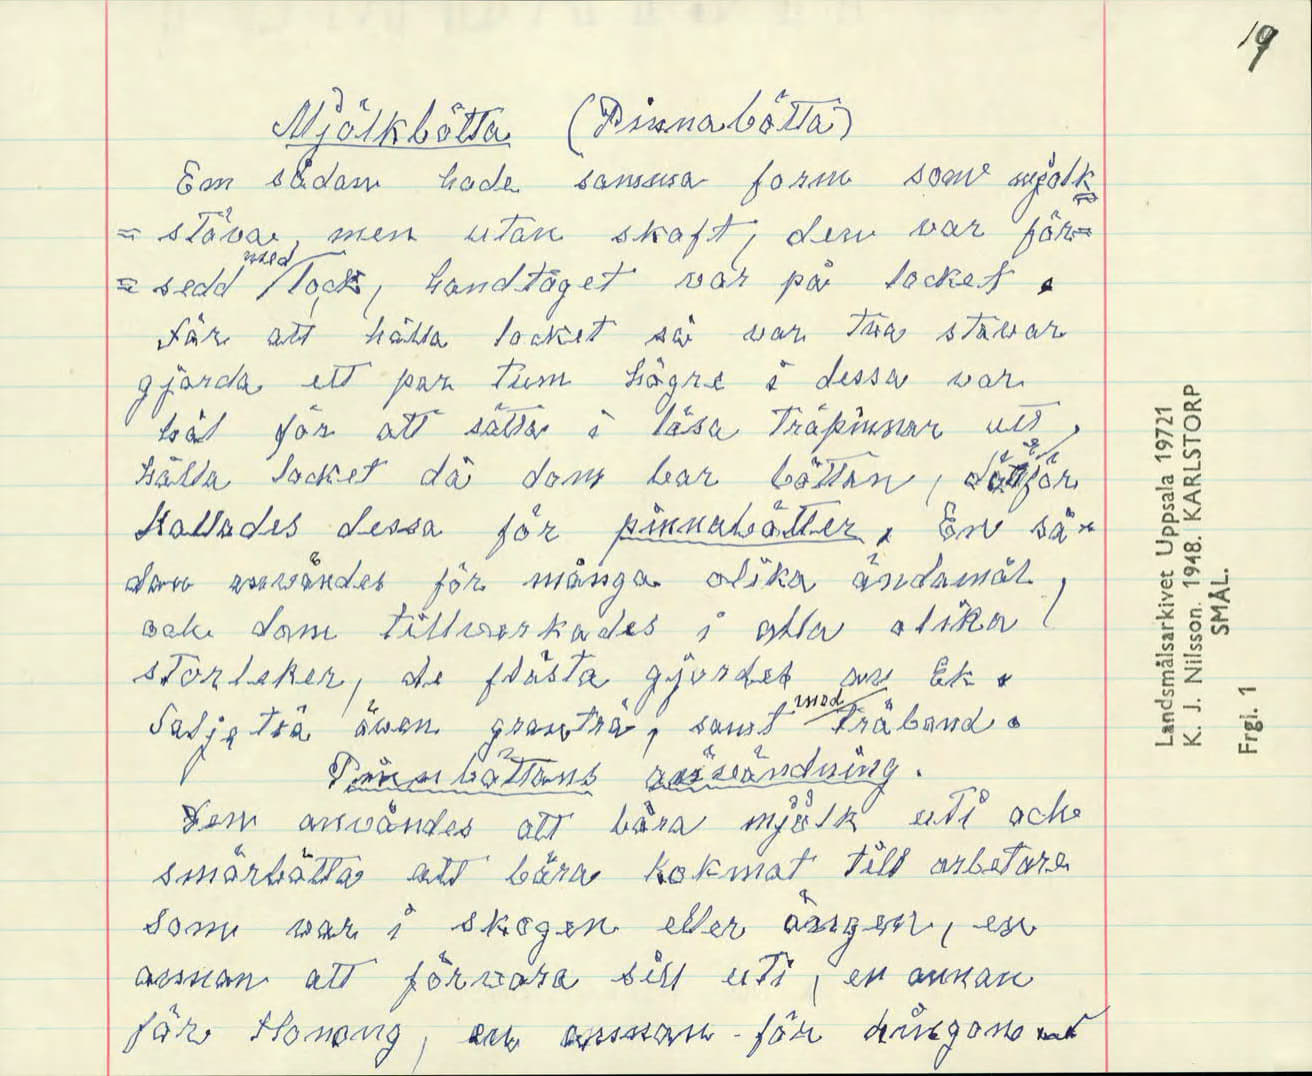 19
Mjölkbötta (Pinnabötta)
En sådan hade samma form som mjölk=
= stäva, men utan skaft, den var för=
= sedd med lock, handtaget var på locket.
För att hålla locket så var två stavar
gjorda ett par tum högre i dessa var
hål för att sätta i lösa träpinnar att
hålla locket då dom bar böttan, därför
kallades dessa för pinnabötter. En så-
dan användes för många olika ändamål,
och dom tillverkades i alla olika
storleker, de flästa gjordes av Ek.
Salje trä även granträ, samt med träband.
Pinnböttans användning.
Den användes att bära mjölk uti och
smörbötta att bära kokmat till arbetare
som var i skogen eller ängen, en
annan att förvara sill uti, en annan
för Honong, en annan för
Landsmålsarkivet Uppsala 19721
K. J. Nilsson. 1948. KARLSTORP
SMÅL.
Frgl. 1